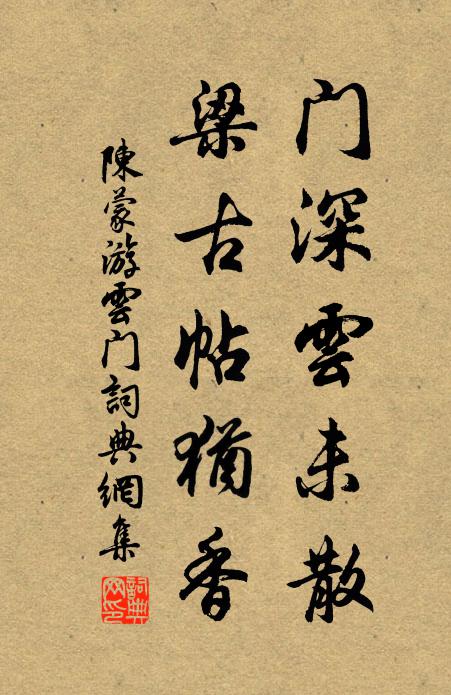 门深雲未散
梁古帖猶香
陳蒙游雲门詞典網集
詞典
网印